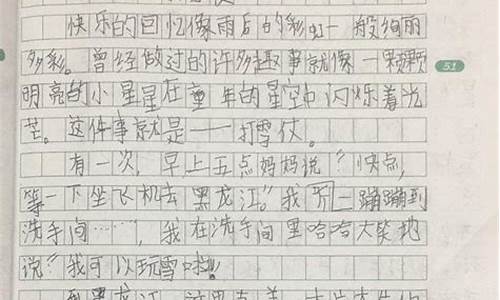 快乐的回忆像雨后的彩虹一般绚丽
多彩。曾经做过的许多趣事就像一颗颗
51
明亮的小星星在童年的星空中闪烁着光
芒。这件事就是——打雪仗。
有一次，早上五点妈妈说“快点，
等一下坐飞机去黑龙江。”我一蹦蹦到
洗手间……，我在洗手间里哈哈大笑地
说“我可以玩雪啦！